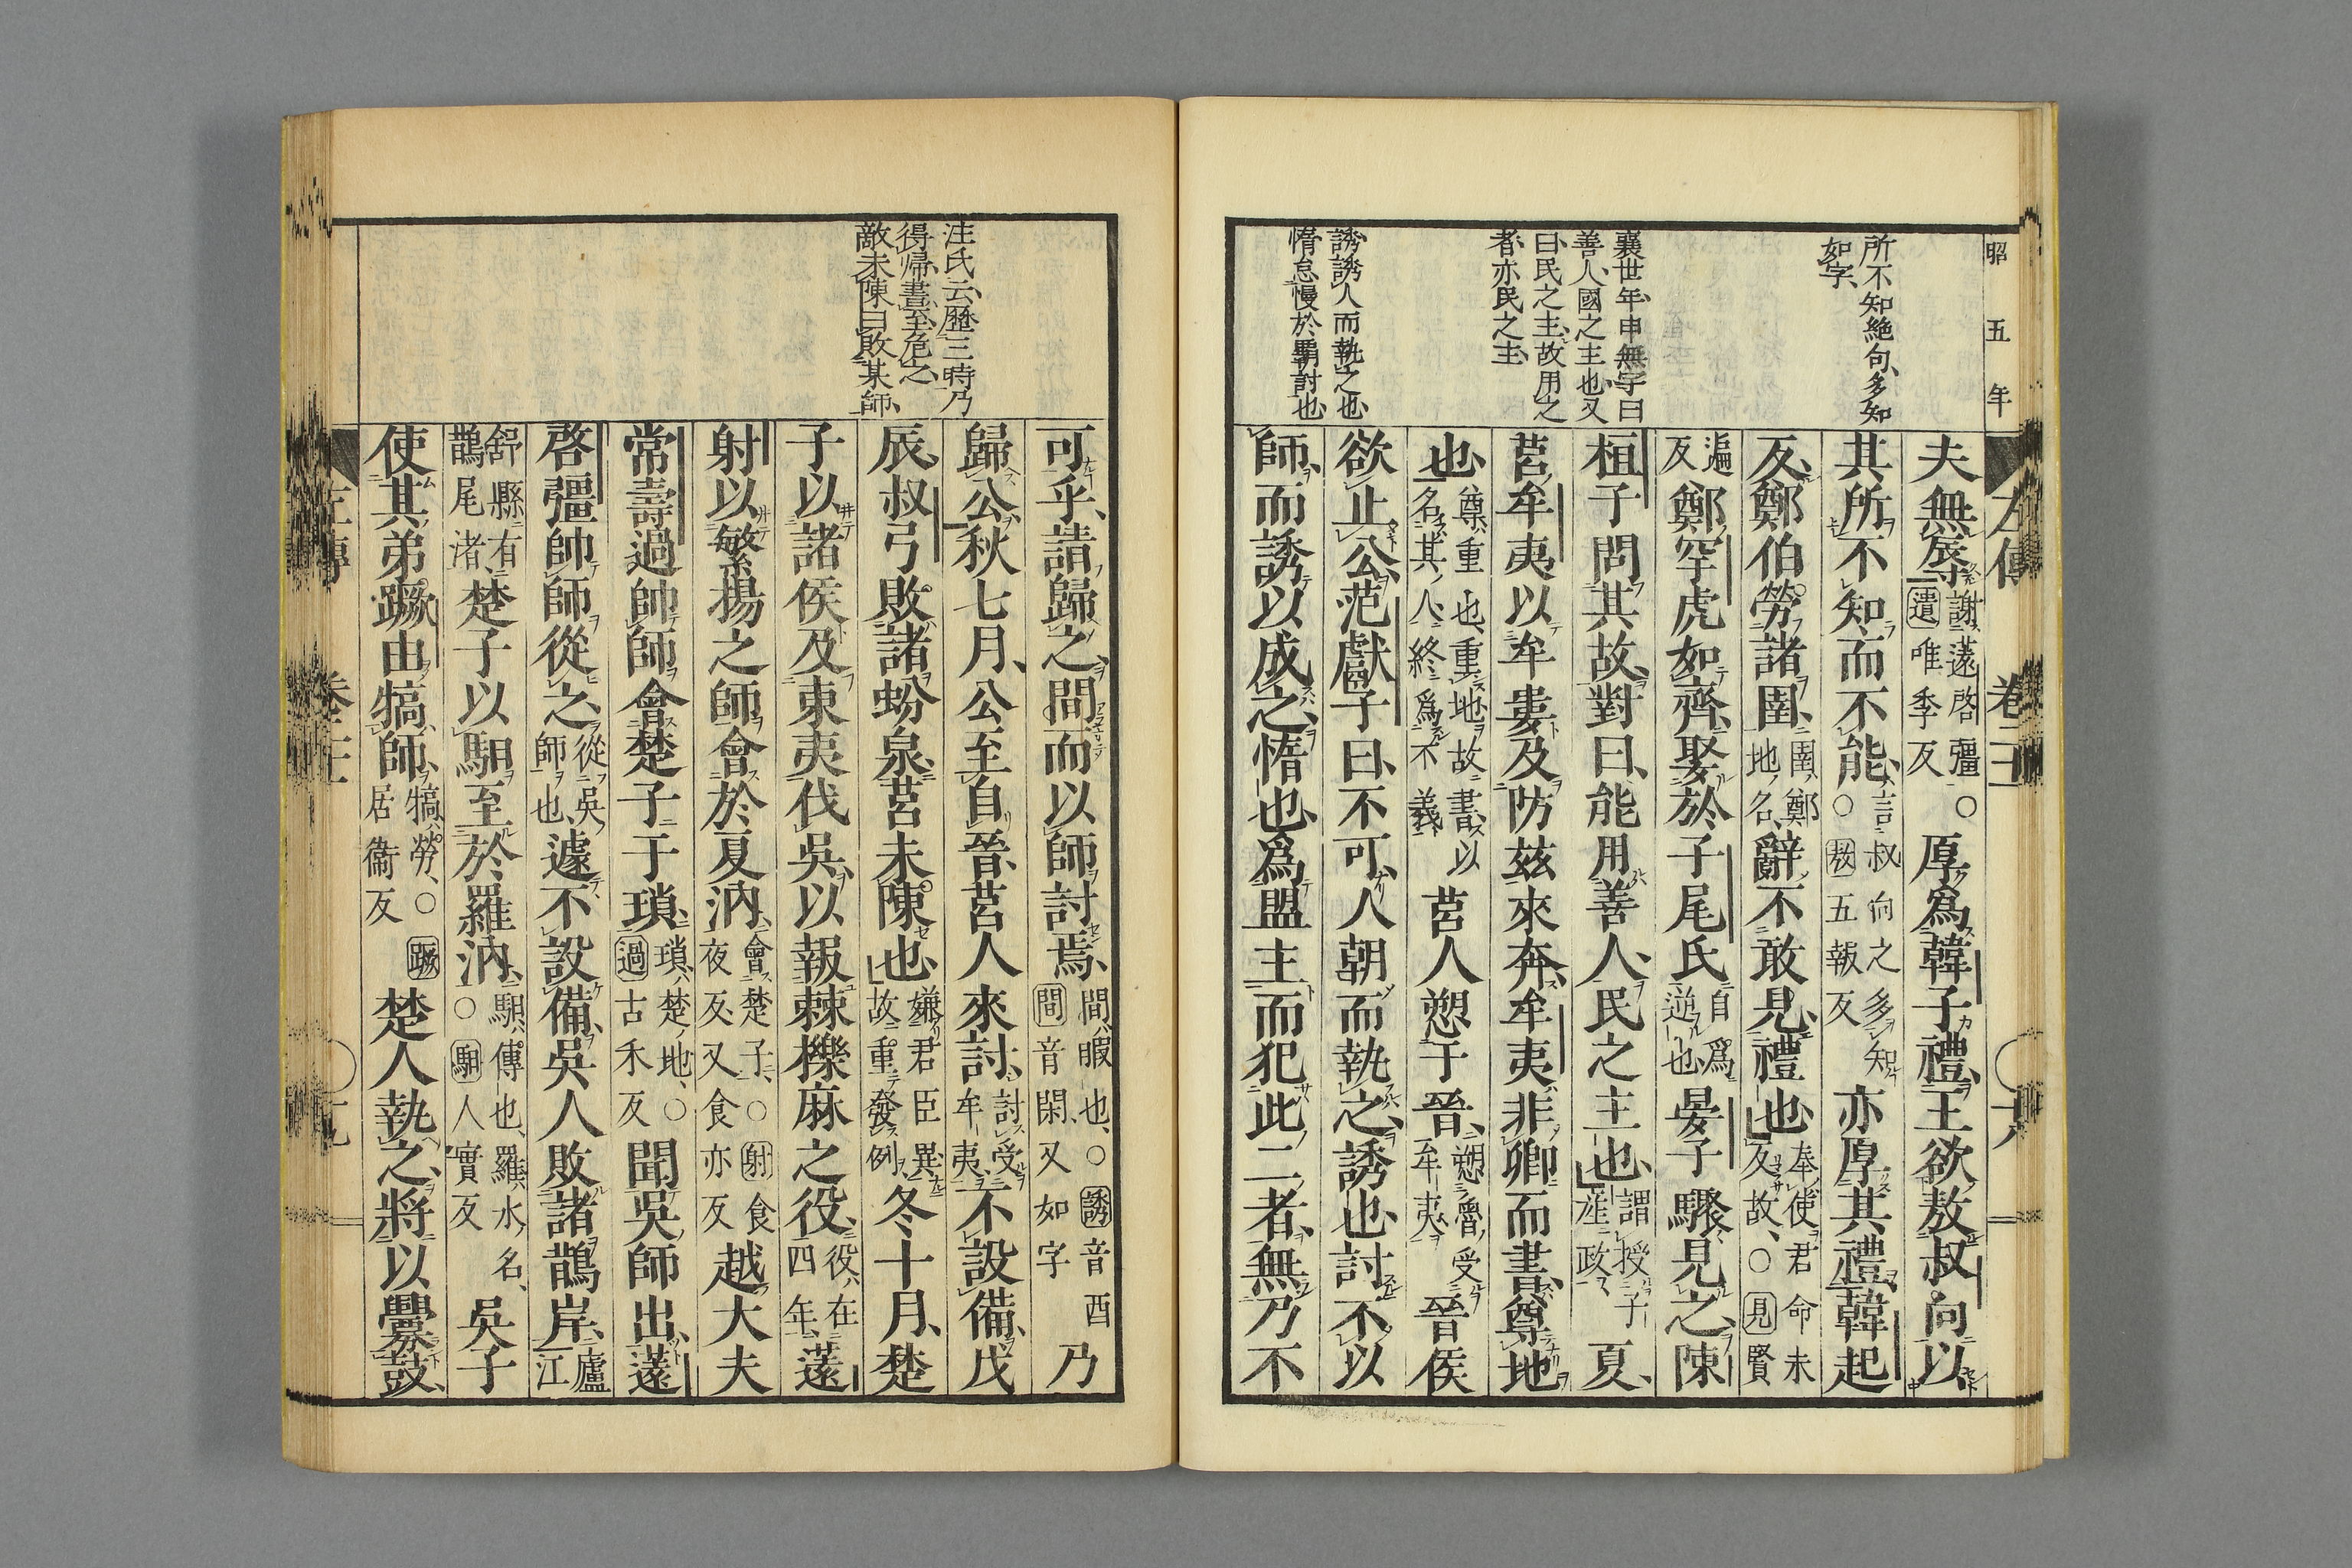 昭五年
所不知絶句多知
如字
襄世年申無宇曰
善人國之主也又
曰民之主故用之
者亦民之主
誘誘人而執之也
惰怠慢於霸討也
左傳　卷二十　十八
夫無辱謝薳啓彊○遣唯季反厚爲韓子禮王欲敖叔向以
其所不知而不能言叔向之多知○敖五報反亦厚其禮韓起
反鄭伯勞諸圉圉鄭地名辭不敢見禮也奉使君命未反故○見賢
遍反鄭罕虎如齊娶於子尾氏自爲逆也晏子驟見之陳
桓子問其故對曰能用善人民之主也謂授子産政夏
莒牟夷以牟婁及防茲來奔牟夷非卿而書尊地
也尊重也重地故書以名其人終爲不義莒人愬于晉愬魯受牟夷晉侯
欲止公范獻子曰不可人朝而執之誘也討不以
師而誘以成之惰也爲盟主而犯此二者無乃不
注氏云歷三時乃
得歸書至危之
敵未陳曰敗某師
可乎請歸之間而以師討焉間暇也○誘音酉間音閑又如字乃
歸公秋七月公至自晉莒人來討討受牟夷不設備戊
辰叔弓敗諸蚡泉莒未陳也嫌君臣異故重發例冬十月楚
子以諸侯及東夷伐吳以報棘櫟麻之役役在四年薳
射以繁揚之師會於夏汭會楚子○射食夜反又食亦反越大夫
常壽過帥師會楚子于瑣瑣楚地○過古禾反聞吳師出薳
啓彊帥師從之從吳師也遽不設備吳人敗諸鵲岸廬江
舒縣有鵲尾渚楚子以馹至於羅汭馹傳也羅水名○馹人實反吳子
使其弟蹶由犒師犒勞○蹶居衞反楚人執之將以釁鼓